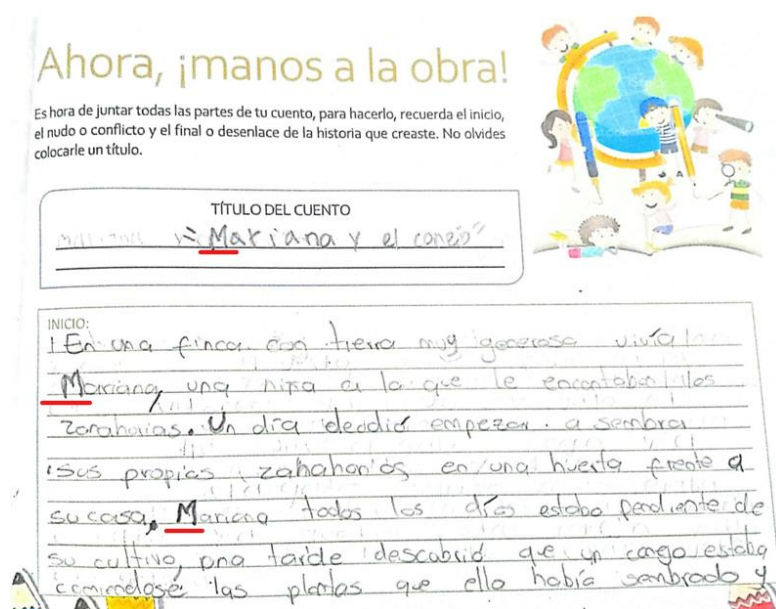 Ahora, ¡manos a la obra!
Es hora de juntar todas las partes de tu cuento, para hacerlo, recuerda el inicio,
el nudo o conflicto y el final o desenlace de la historia que creaste. No olvides
colocarle un título.
TÍTULO DEL CUENTO
"Mariana y el conejo"
INICIO:
En una finca con tierra muy generosa vivía
Mariana, una niña a la que le encantaban las
zanahorias. Un día decidió empezar a sembrar
sus propias zahahorias en una huerta frente a
su casa, Mariana todos los días estaba pendiente de
su cultivo, una tarde descubrió que un conejo estaba
comiendose las plantas que ella había sembrado y